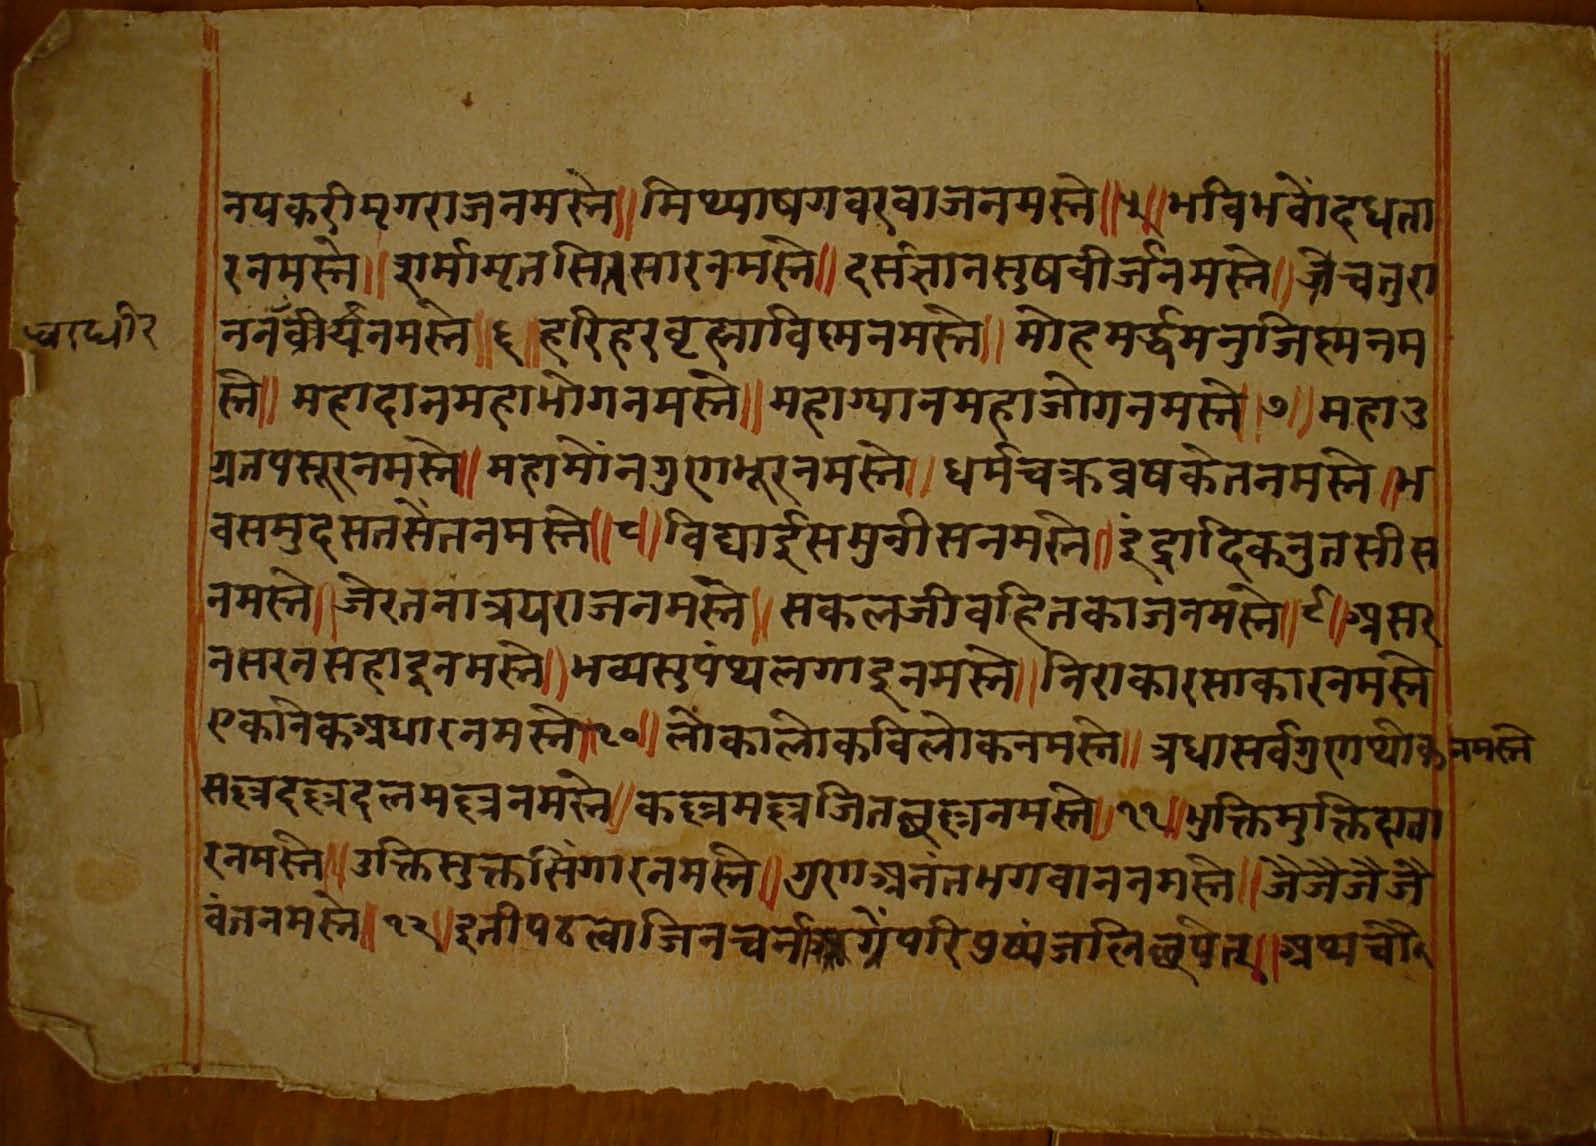 नयकरीमृगराजनमस्ते॥ मिथ्याषगवरवाजनमस्ते॥५॥ भविभवोदधता
रनमस्ते॥ शर्मामृतसितसारनमस्ते॥ दर्सज्ञानसुषवीर्जनमस्ते॥ जैचतुरा
ननवीर्यनमस्ते॥६॥ हरिहरवृह्माविस्मनमस्ते॥ मोहमर्द्धमनुजिस्मनम
स्ते॥ महादानमहाभोगनमस्ते॥ महाग्यानमहाजोगनमस्ते॥७॥ महाउ
ग्रतपसूरनमस्ते॥ महामोंनगुणभूरनमस्ते॥ धर्मचक्रव्रषकेतनमस्ते॥ भ
वसमुदसतसेतनमस्ते॥८॥ विद्याईसमुनीसनमस्ते॥ इंद्रादिकनुतसीस
नमस्ते॥ जैरतनात्रयराजनमस्ते॥ सकलजीवहितकाजनमस्ते॥९॥ असर
नसरनसहाइनमस्ते॥ भव्यसुपंथलगाइनमस्ते॥ निराकारसाकारनमस्ते
एकानेकअधारनमस्ते॥१०॥ लोकालोकविलोकनमस्ते॥ त्रधासर्वगुणथोकनमस्ते
सल्लदल्लदलमल्लनमस्ते॥ कल्लमल्लजितछल्लनमस्ते॥११॥ भुक्तिमुक्तिदाता
रनमस्ते॥ उक्तिसुक्तसिंगारनमस्ते॥ गुणअनंतभगवाननमस्ते॥ जैजैजैजै
वंतनमस्ते॥१२॥ इतीपढत्वाजिनचर्नाग्रेंपरिपुष्पंजलिछपेत्॥ अथचौ